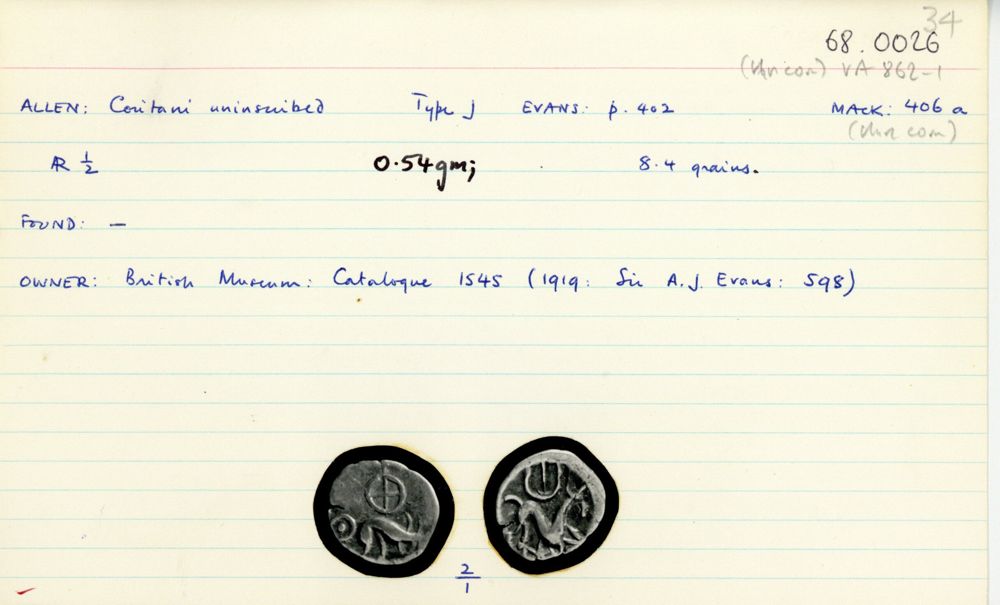 34
68.0026
(Uninscr) VA 862-1
ALLEN: Coritani uninscribed Type j EVANS: p. 402 MACK: 406 a
AR 1/2 0.54gm; 8.4 grains.
FOUND: —
OWNER: British Museum: Catalogue 1545 (1919: Sir A.J. Evans: 598)
2/1